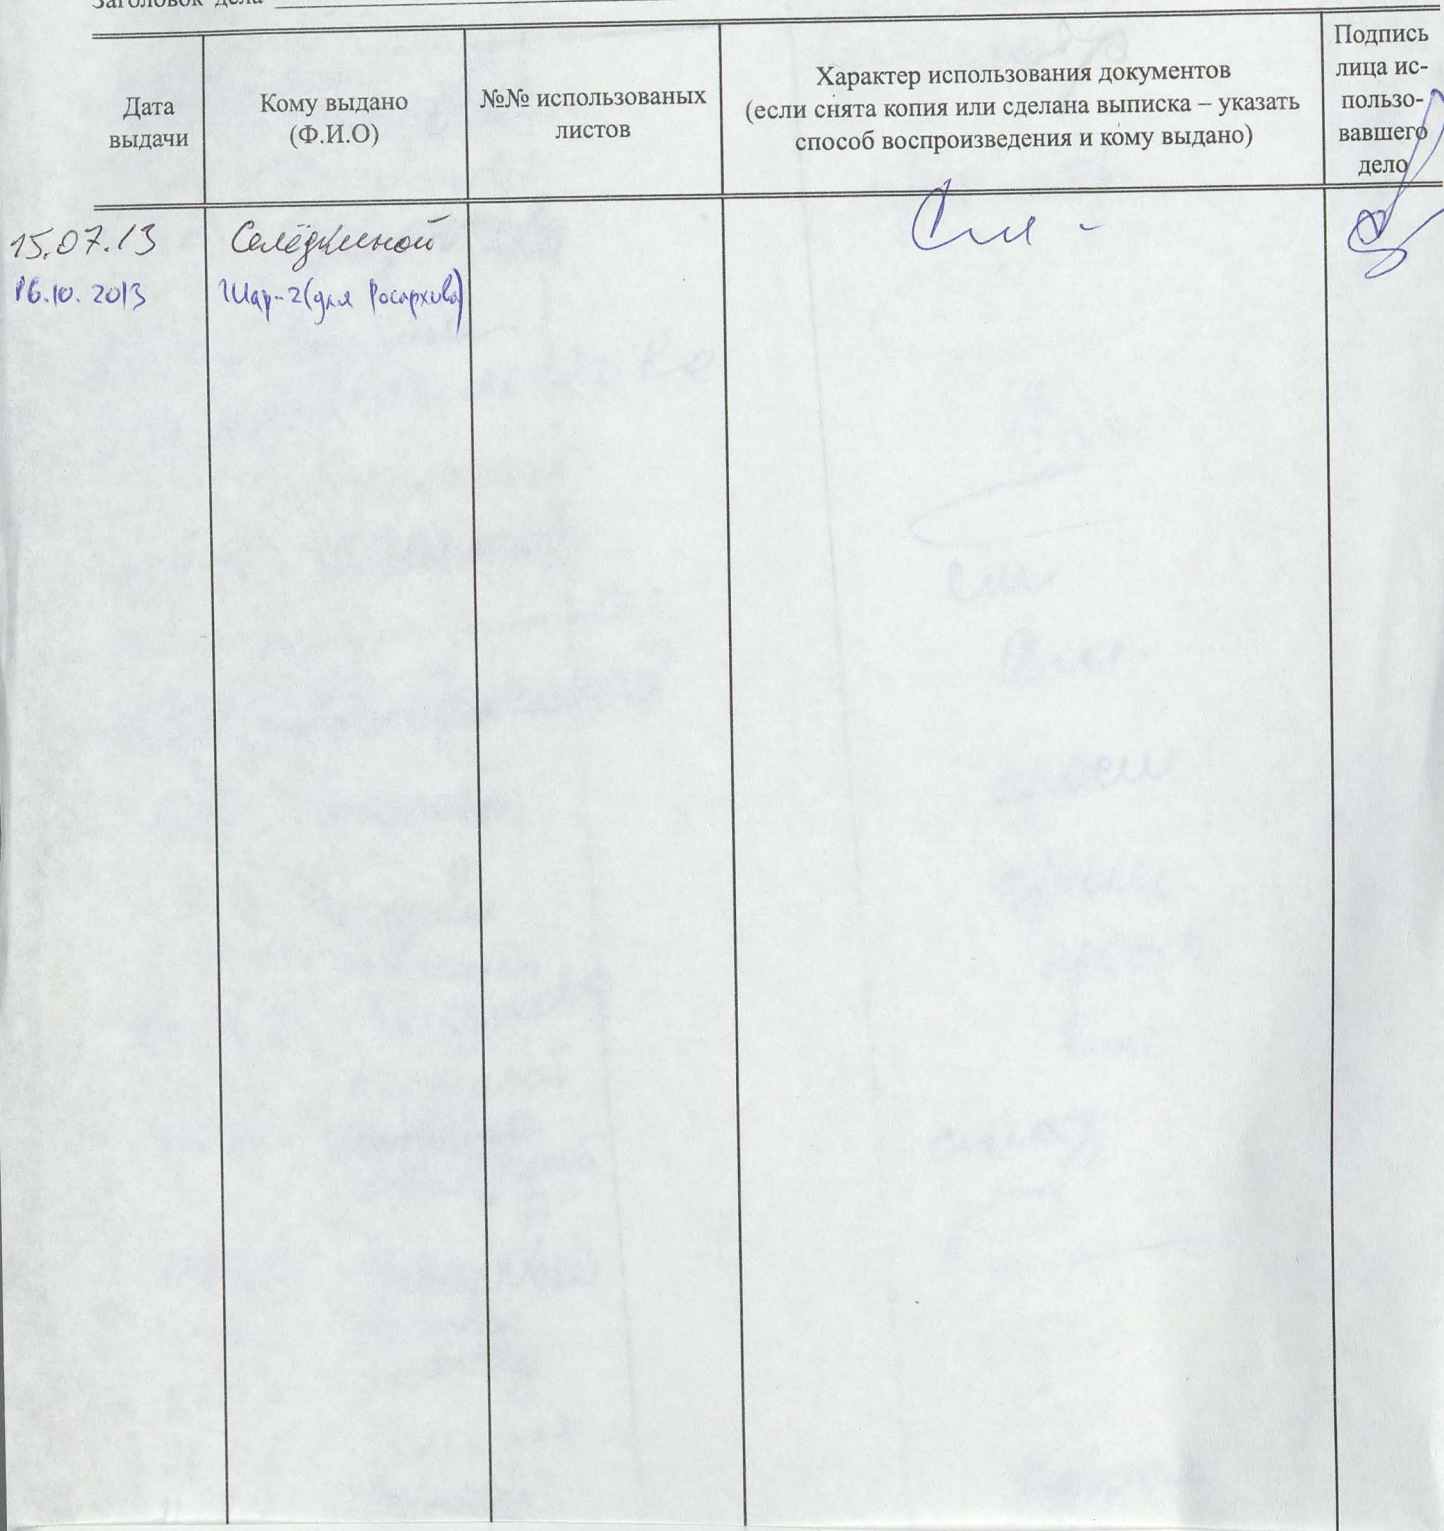 Заголовок дела
Дата выдачи
Кому выдано (Ф.И.О)
№№ использованых листов
Характер использования документов
(если снята копия или сделана выписка – указать
способ воспроизведения и кому выдано)
Подпись
лица ис-
пользо-
вавшего
дело
15.07.13 Селёдкиной
16.10.2013 (для Росархива)